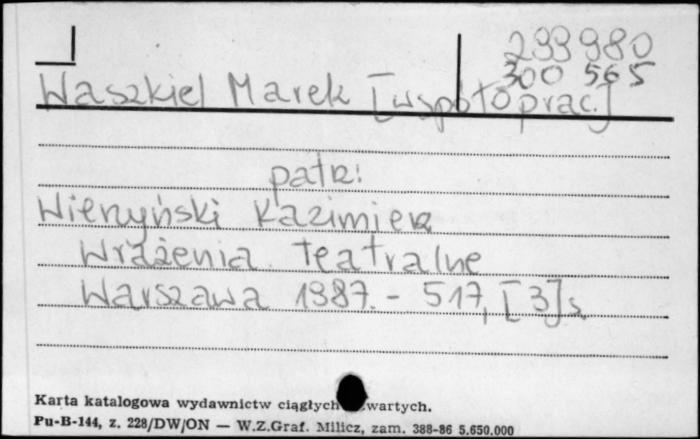 299980
300 565
Waszkiel Marek [współoprac.]
patrz:
Wierzyński Kazimierz
Wrażenia teatralne
Warszawa 1987. - 517, [3] s.
Karta katalogowa wydawnictw ciągłych
Pu-B-144, z. 228/DW/ON — W.Z.Graf. Milicz, zam. 388-86 5.650.000